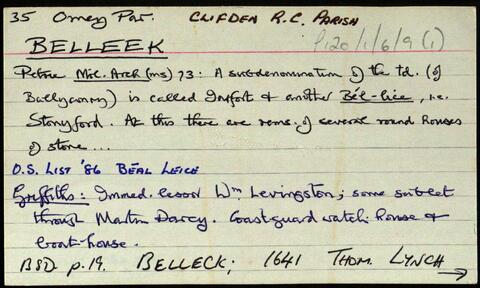 35 Omey Par. CLIFDEN R.C. PARISH
P.20/1/6/9(1)
BELLEEK
Petrie Mil. Arch (ms) 73: A subdenomination of the td. (of
Ballyconry) is called Dofort & another Bél-lice, i.e.
Stonyford. At this there are rems. of several round houses
of stone ...
O.S. LIST '86 BÉAL LEICE
Griffiths: Immed. lessor Wm Levingston; some sublet
through Martin Darcy. Coastguard watch-house &
boat-house.
BSD p.19. BELLECK; 1641 THOM. LYNCH →